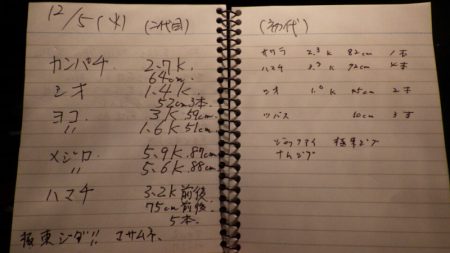 12/5(火) (二代目)
カンパチ. 2.7K.
64cm.
シオ 1.4K.
52cm 3本.
ヨコ. 3K 59cm
〃 1.6K 51cm.
メジロ 5.9K. 87cm
〃 5.6K. 88cm.
ハマチ 3.2K前後
75cm前後.
5本.
坂東シーダ!! マサムネ.
(初代)
サワラ 2.3K 82cm 1本
ハマチ 72cm
シオ 1.0K 45cm 2本
ツバス 3本